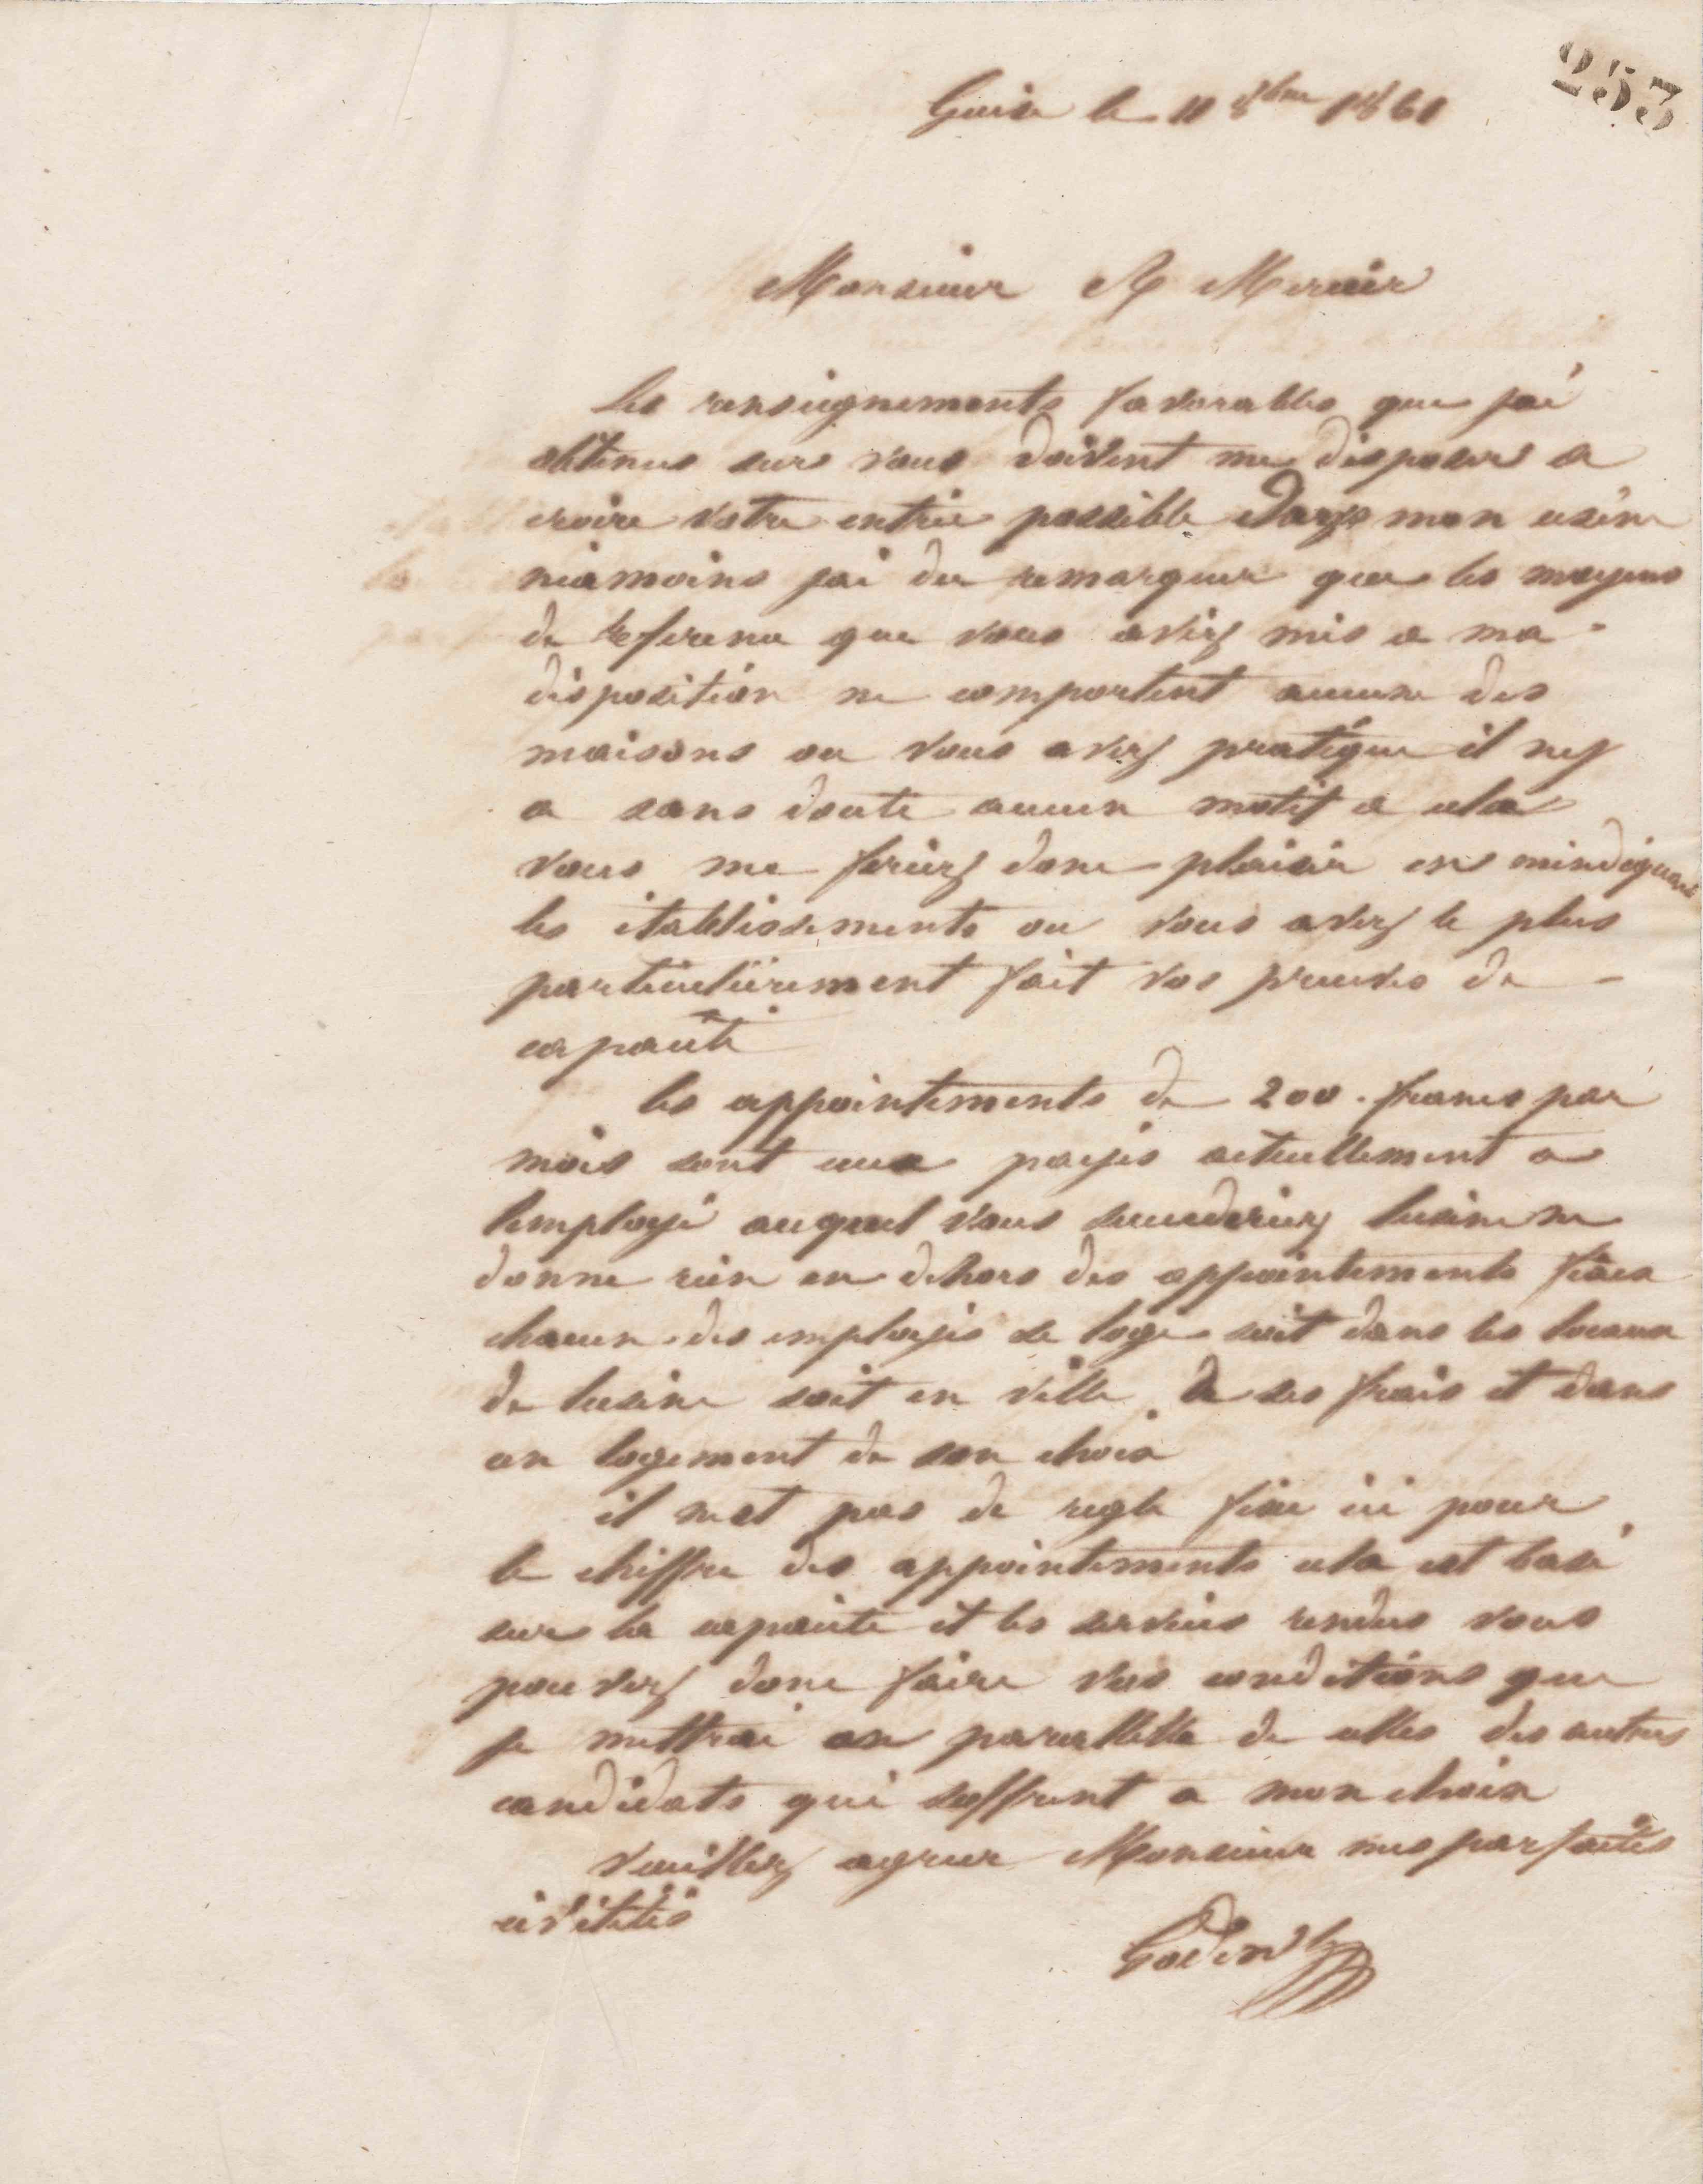 253
Guise le 11 8bre 1861
Monsieur A Mercier
les renseignements favorables que jai
obtenus sur vous doivent me disposer a
croire votre entrée possible dans mon usine
néamoins jai du remarquer que les moyens
de reference que vous aviez mis a ma
disposition ne comportent aucune des
maisons ou vous avez pratiqué il ny
a sans doute aucun motif a cela
vous me feriez donc plaisir en mindiquant
les établissements ou vous avez le plus
particulièrement fait vos preuves de
capacité
les appointements de 200. francs par
mois sont ceux payés actuellement a
lemployé auquel vous succederiez lusine ne
donne rien en dehors des appointements fixes
chacun des employés se loge soit dans les locaux
de lusine soit en ville a ses frais et dans
un logement de son choix
il nest pas de regle fixe ici pour
le chiffre des appointements cela est basé
sur la capacité et les services rendus vous
pouvez donc faire vos conditions que
je mettrai en parallelle de celles des autres
candidats qui soffrent a mon choix
veuillez agreer Monsieur mes parfaites
civilités
Godin